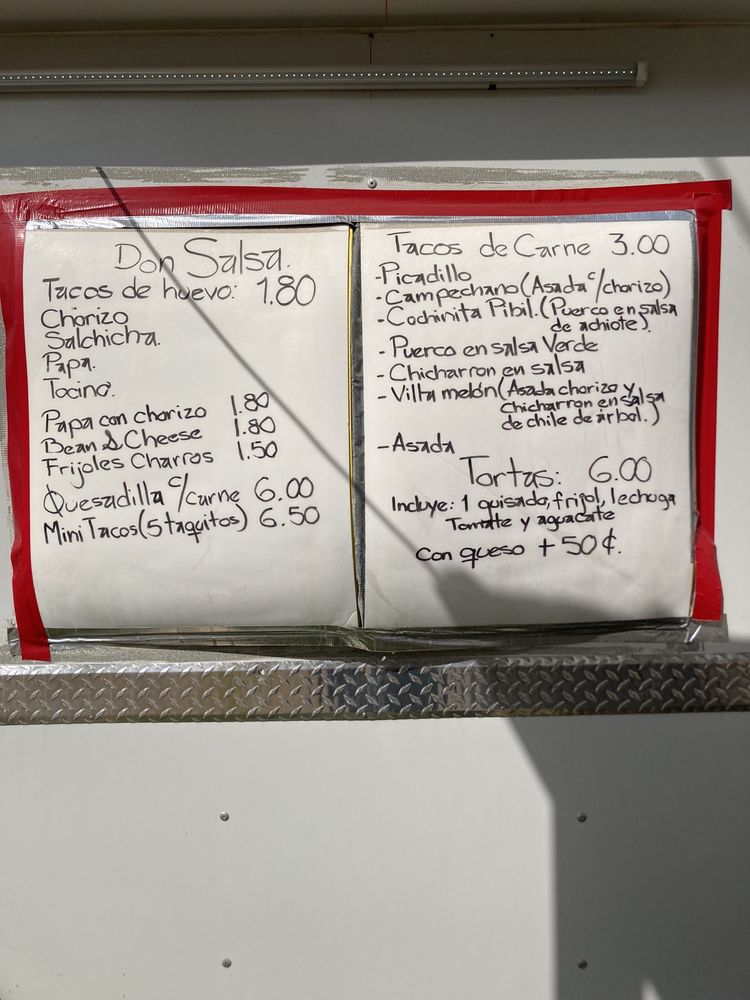 Don Salsa.
Tacos de huevo: 1.80
Chorizo
Salchicha.
Papa.
Tocino.
Papa con chorizo 1.80
Bean & Cheese 1.80
Frijoles Charros 1.50
Quesadilla c/carne 6.00
Mini Tacos (5 taquitos) 6.50
Tacos de Carne 3.00
-Picadillo
-Campechano (Asada c/chorizo)
-Cochinita Pibil. (Puerco en salsa
de achiote).
-Puerco en salsa Verde
-Chicharron en salsa
-Villa melón (Asada chorizo y
Chicharron en salsa
de chile de árbol.)
-Asada
Tortas: 6.00
Incluye: 1 guisado, frijol, lechuga
Tomate y aguacate
Con queso + 50¢.